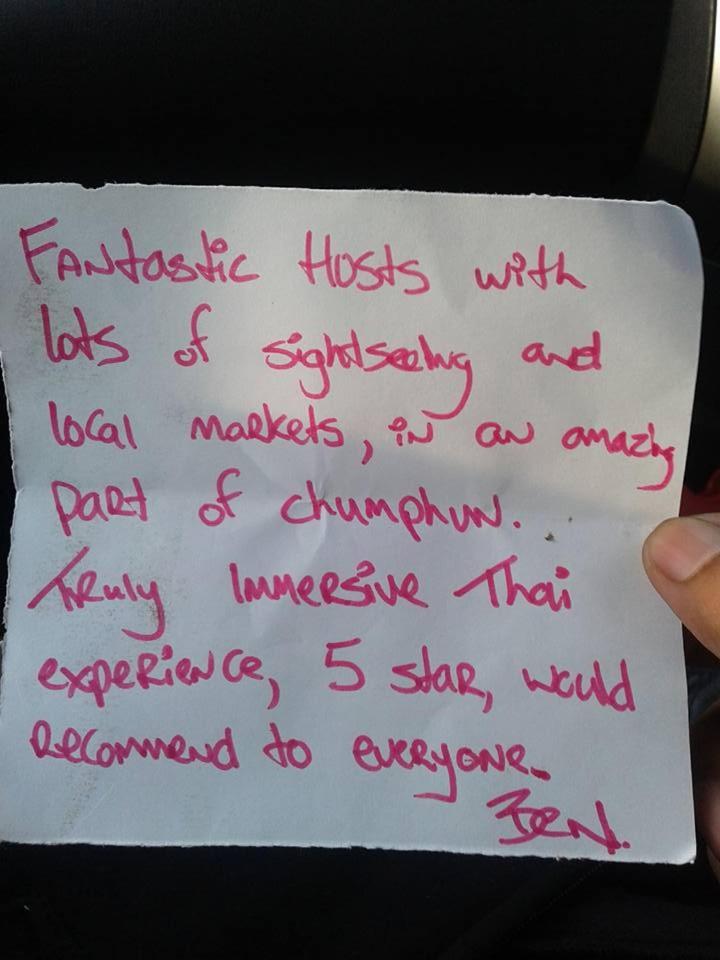 Fantastic Hosts with
lots of sightseeing and
local markets, in an amazing
part of chumphun.
Truly Immersive Thai
experience, 5 star, would
recommend to everyone.
Ben.